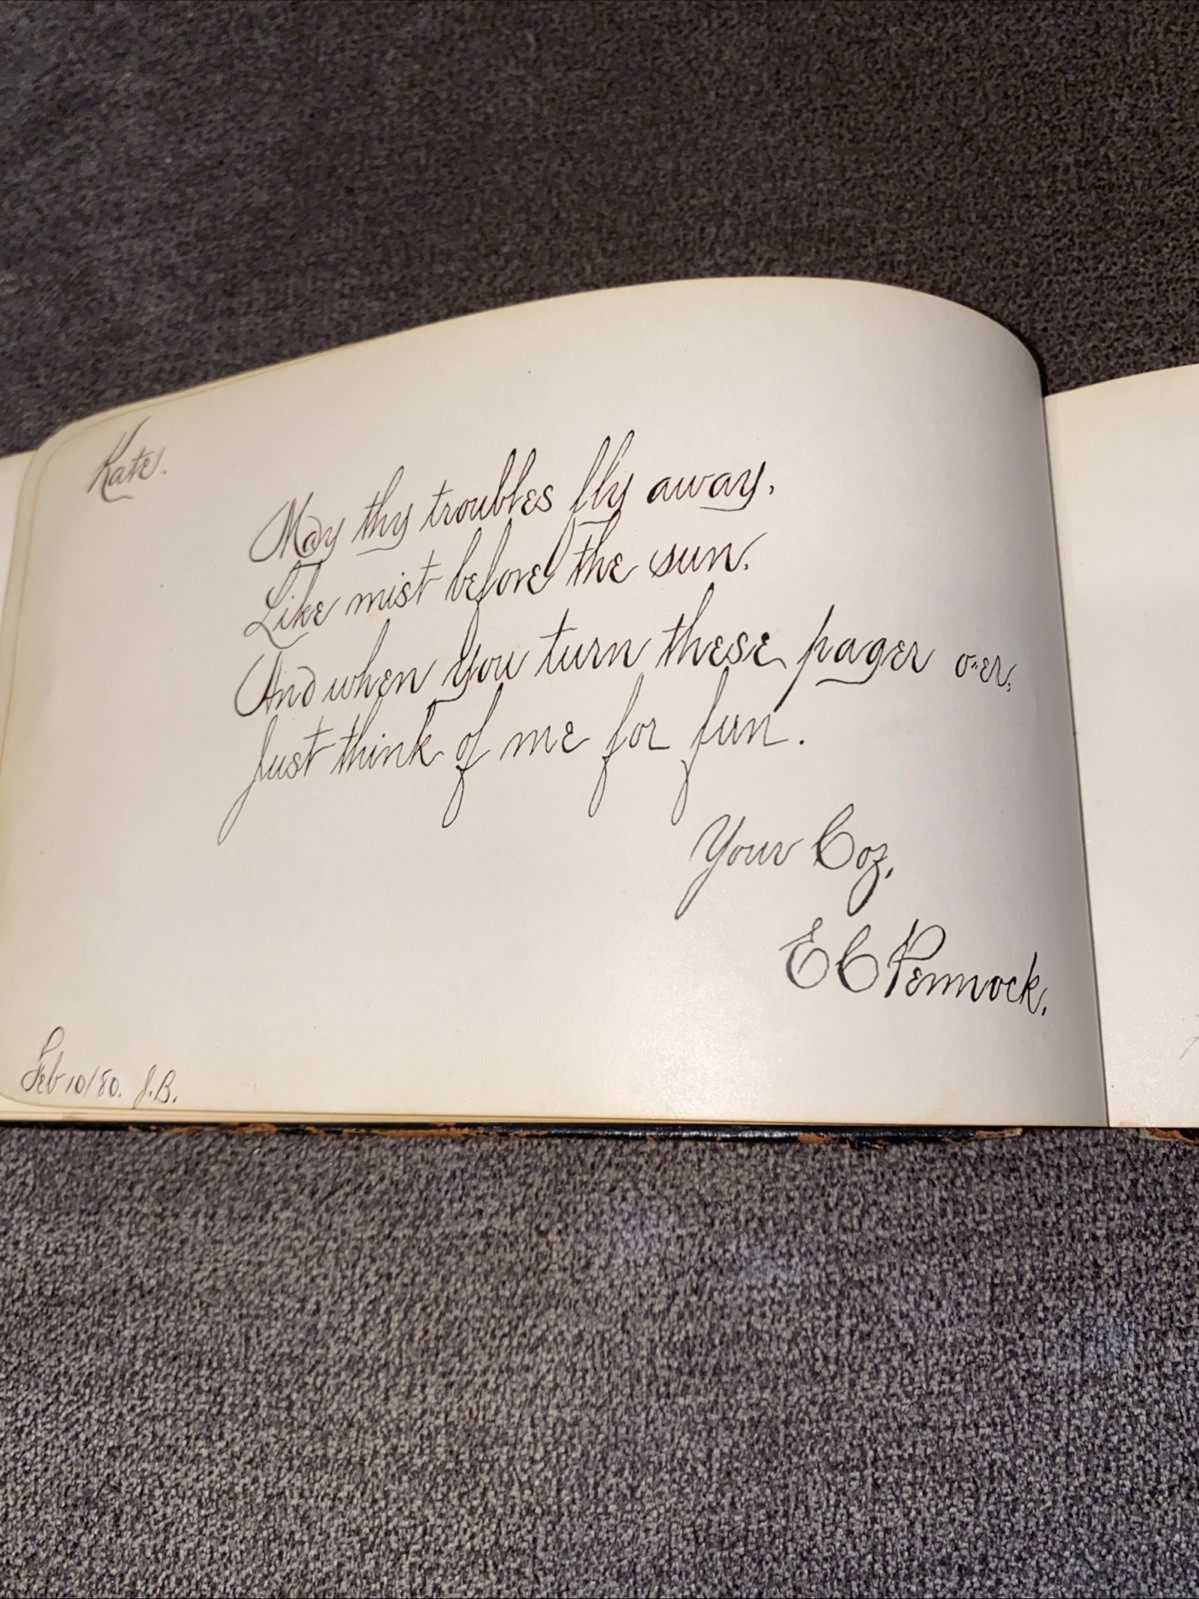 Kate.
May thy troubles fly away,
Like mist before the sun.
And when you turn these pages o'er,
Just think of me for fun.
Your Coz,
E C Pennock.
Feb 10/80. J.B.